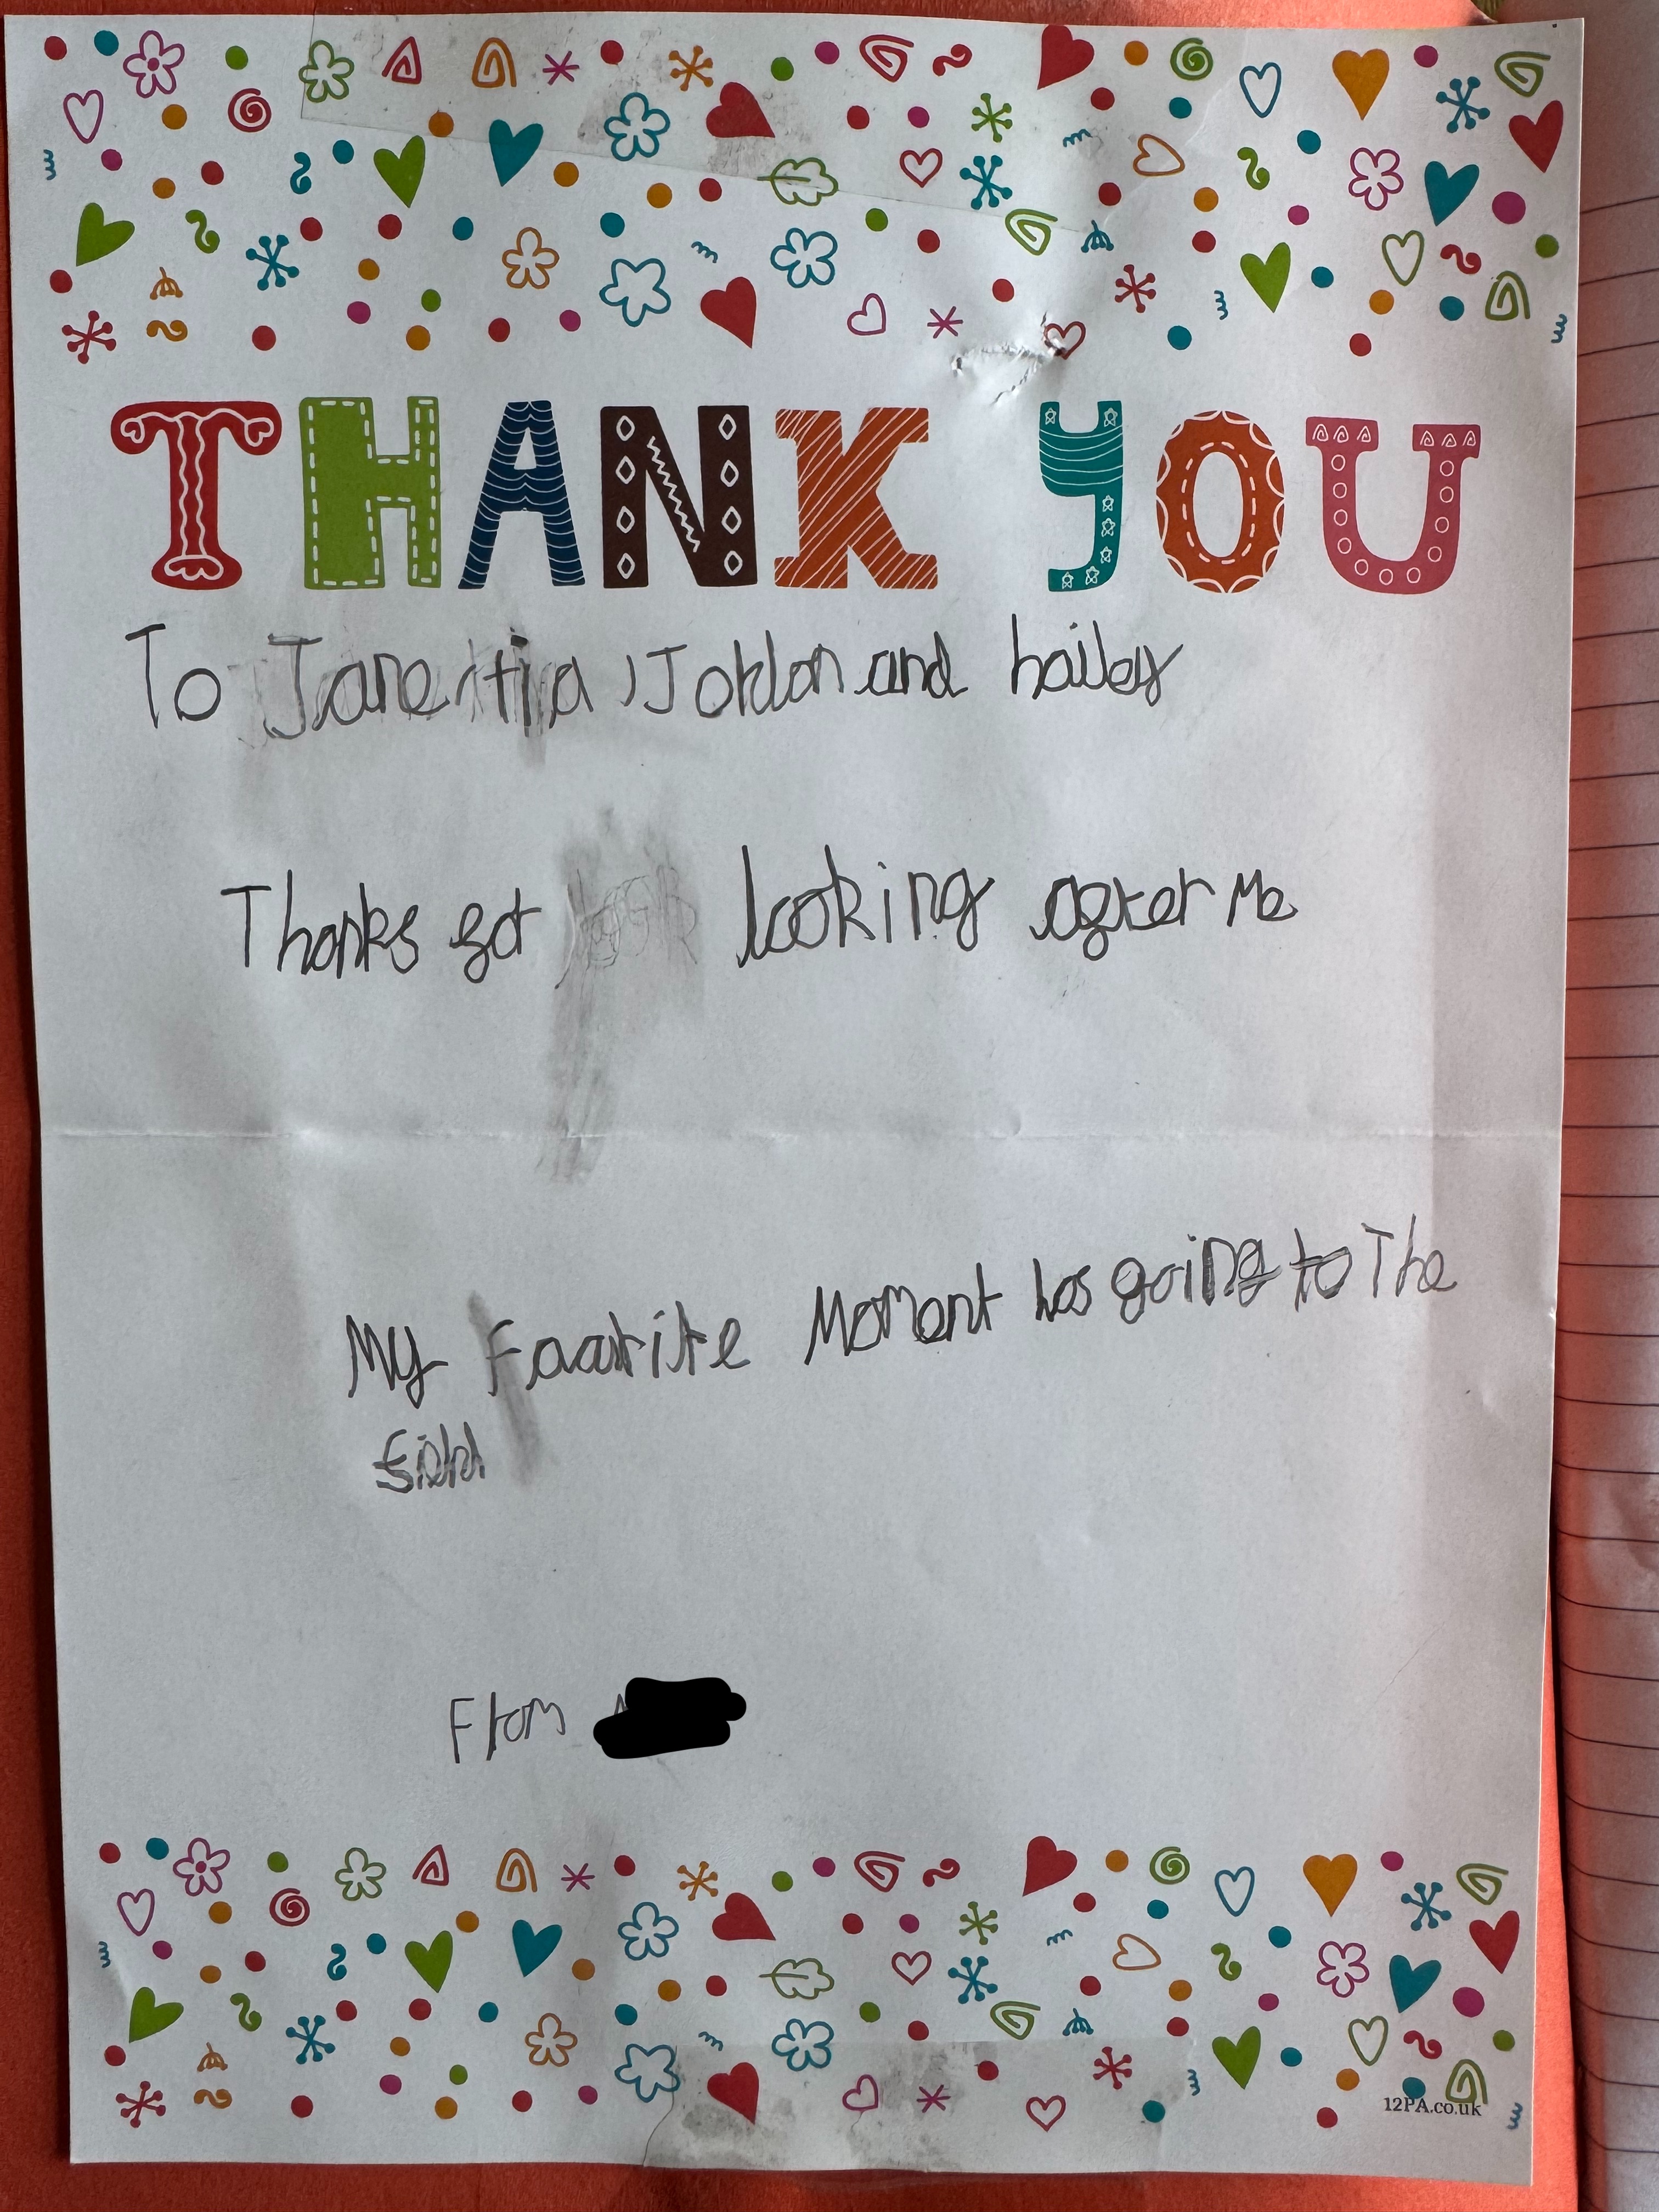 THANK YOU
To Jane, tia, Jordan and hailey
Thanks for looking after Me
My Faarite Moment was going to The
field
From
12PA.co.uk